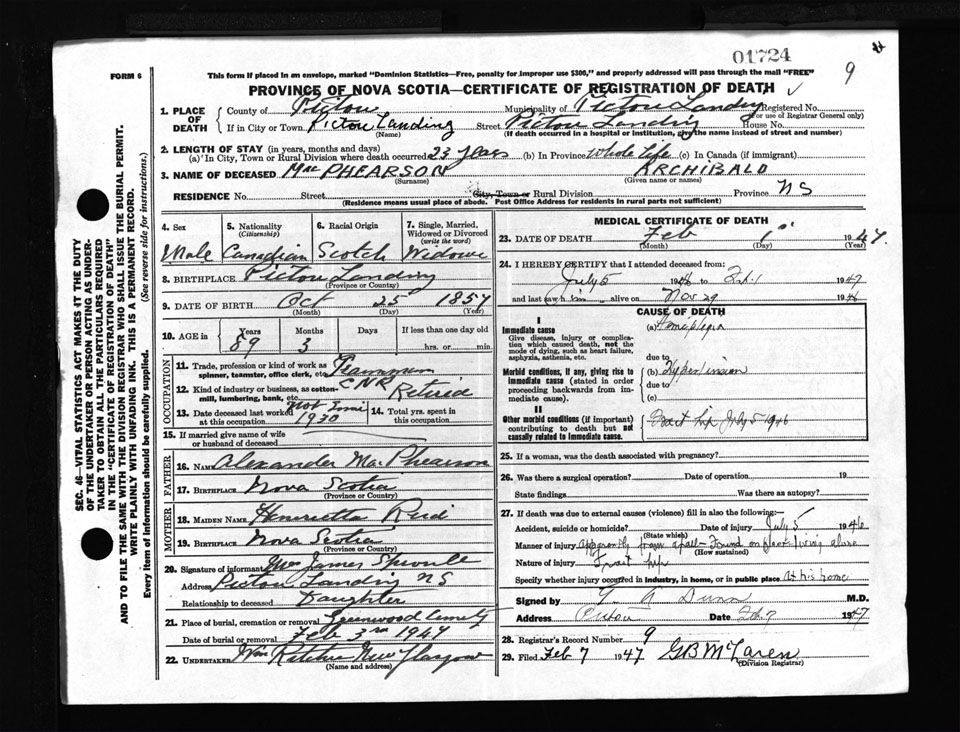 01724
9
FORM 6
This form if placed in an envelope, marked "Dominion Statistics—Free, penalty for improper use $300," and properly addressed will pass through the mail "FREE"
PROVINCE OF NOVA SCOTIA—CERTIFICATE OF REGISTRATION OF DEATH
1. PLACE OF DEATH
County of Pictou Municipality of Pictou Landing Registered No.
(For use of Registrar General only)
If in City or Town Pictou Landing Street Pictou Landing House No.
(Name) (If death occurred in a hospital or institution, give the name instead of street and number)
2. LENGTH OF STAY (in years, months and days)
(a) In City, Town or Rural Division where death occurred 23 years (b) In Province whole life (c) In Canada (if immigrant)
3. NAME OF DECEASED MacPHEARSON ARCHIBALD
(Surname) (Given name or names)
RESIDENCE No. Street City, Town or Rural Division Province NS
(Residence means usual place of abode. Post Office Address for residents in rural parts not sufficient)
4. Sex
Male
5. Nationality
(Citizenship)
Canadian
6. Racial Origin
Scotch
7. Single, Married, Widowed or Divorced
(write the word)
Widowe
8. BIRTHPLACE Pictou Landing
(Province or Country)
9. DATE OF BIRTH Oct 25 1857
(Month) (Day) (Year)
10. AGE in Years Months Days If less than one day old
89 3 hrs. or min.
OCCUPATION
11. Trade, profession or kind of work as
spinner, teamster, office clerk, etc.
12. Kind of industry or business, as cotton-
mill, lumbering, bank, etc. CNR Retired
13. Date deceased last worked
at this occupation 1930
14. Total yrs. spent in
this occupation
15. If married give name of wife
or husband of deceased
FATHER
16. NAME Alexander MacPhearson
17. BIRTHPLACE Nova Scotia
(Province or Country)
MOTHER
18. MAIDEN NAME Henrietta Reid
19. BIRTHPLACE Nova Scotia
(Province or Country)
20. Signature of informant Mrs James Sproule
Address Pictou Landing NS
Relationship to deceased Daughter
21. Place of burial, cremation or removal
Date of burial or removal Feb 3rd 1947
22. UNDERTAKER Wm Ritchie New Glasgow
(Name and address)
MEDICAL CERTIFICATE OF DEATH
23. DATE OF DEATH Feb 1 1947
(Month) (Day) (Year)
24. I HEREBY CERTIFY that I attended deceased from:
July 5 1946 to Feb 1 1947
and last saw him alive on Nov 29 1946
CAUSE OF DEATH
I
Immediate cause (a) Hemiplegia
Give disease, injury or complica-
tion which caused death, not the
mode of dying, such as heart failure,
asphyxia, asthenia, etc. due to
Morbid conditions, if any, giving rise to (b) Hypertension
immediate cause (stated in order due to
proceeding backwards from im-
mediate cause). (c)
II
Other morbid conditions (if important) Fract hip July 5 1946
contributing to death but not
causally related to immediate cause.
25. If a woman, was the death associated with pregnancy?
26. Was there a surgical operation? Date of operation 19
State findings Was there an autopsy?
27. If death was due to external causes (violence) fill in also the following:—
Accident, suicide or homicide? Date of injury July 5 1946
(State which)
Manner of injury apparently from a fall – Found on floor – living alone
(How sustained)
Nature of injury Fract hip
Specify whether injury occurred in industry, in home, or in public place at his home
Signed by Dunn M.D.
Address Pictou Date Feb 7 1947
28. Registrar's Record Number 9
29. Filed Feb 7 1947 GB McLaren
(Division Registrar)
SEC. 46—VITAL STATISTICS ACT MAKES IT THE DUTY
OF THE UNDERTAKER OR PERSON ACTING AS UNDER-
TAKER TO OBTAIN ALL THE PARTICULARS REQUIRED
IN THE "CERTIFICATE OF REGISTRATION OF DEATH"
AND TO FILE THE SAME WITH THE DIVISION REGISTRAR WHO SHALL ISSUE THE BURIAL PERMIT.
WRITE PLAINLY WITH UNFADING INK. THIS IS A PERMANENT RECORD.
Every item of information should be carefully supplied. (See reverse side for instructions.)